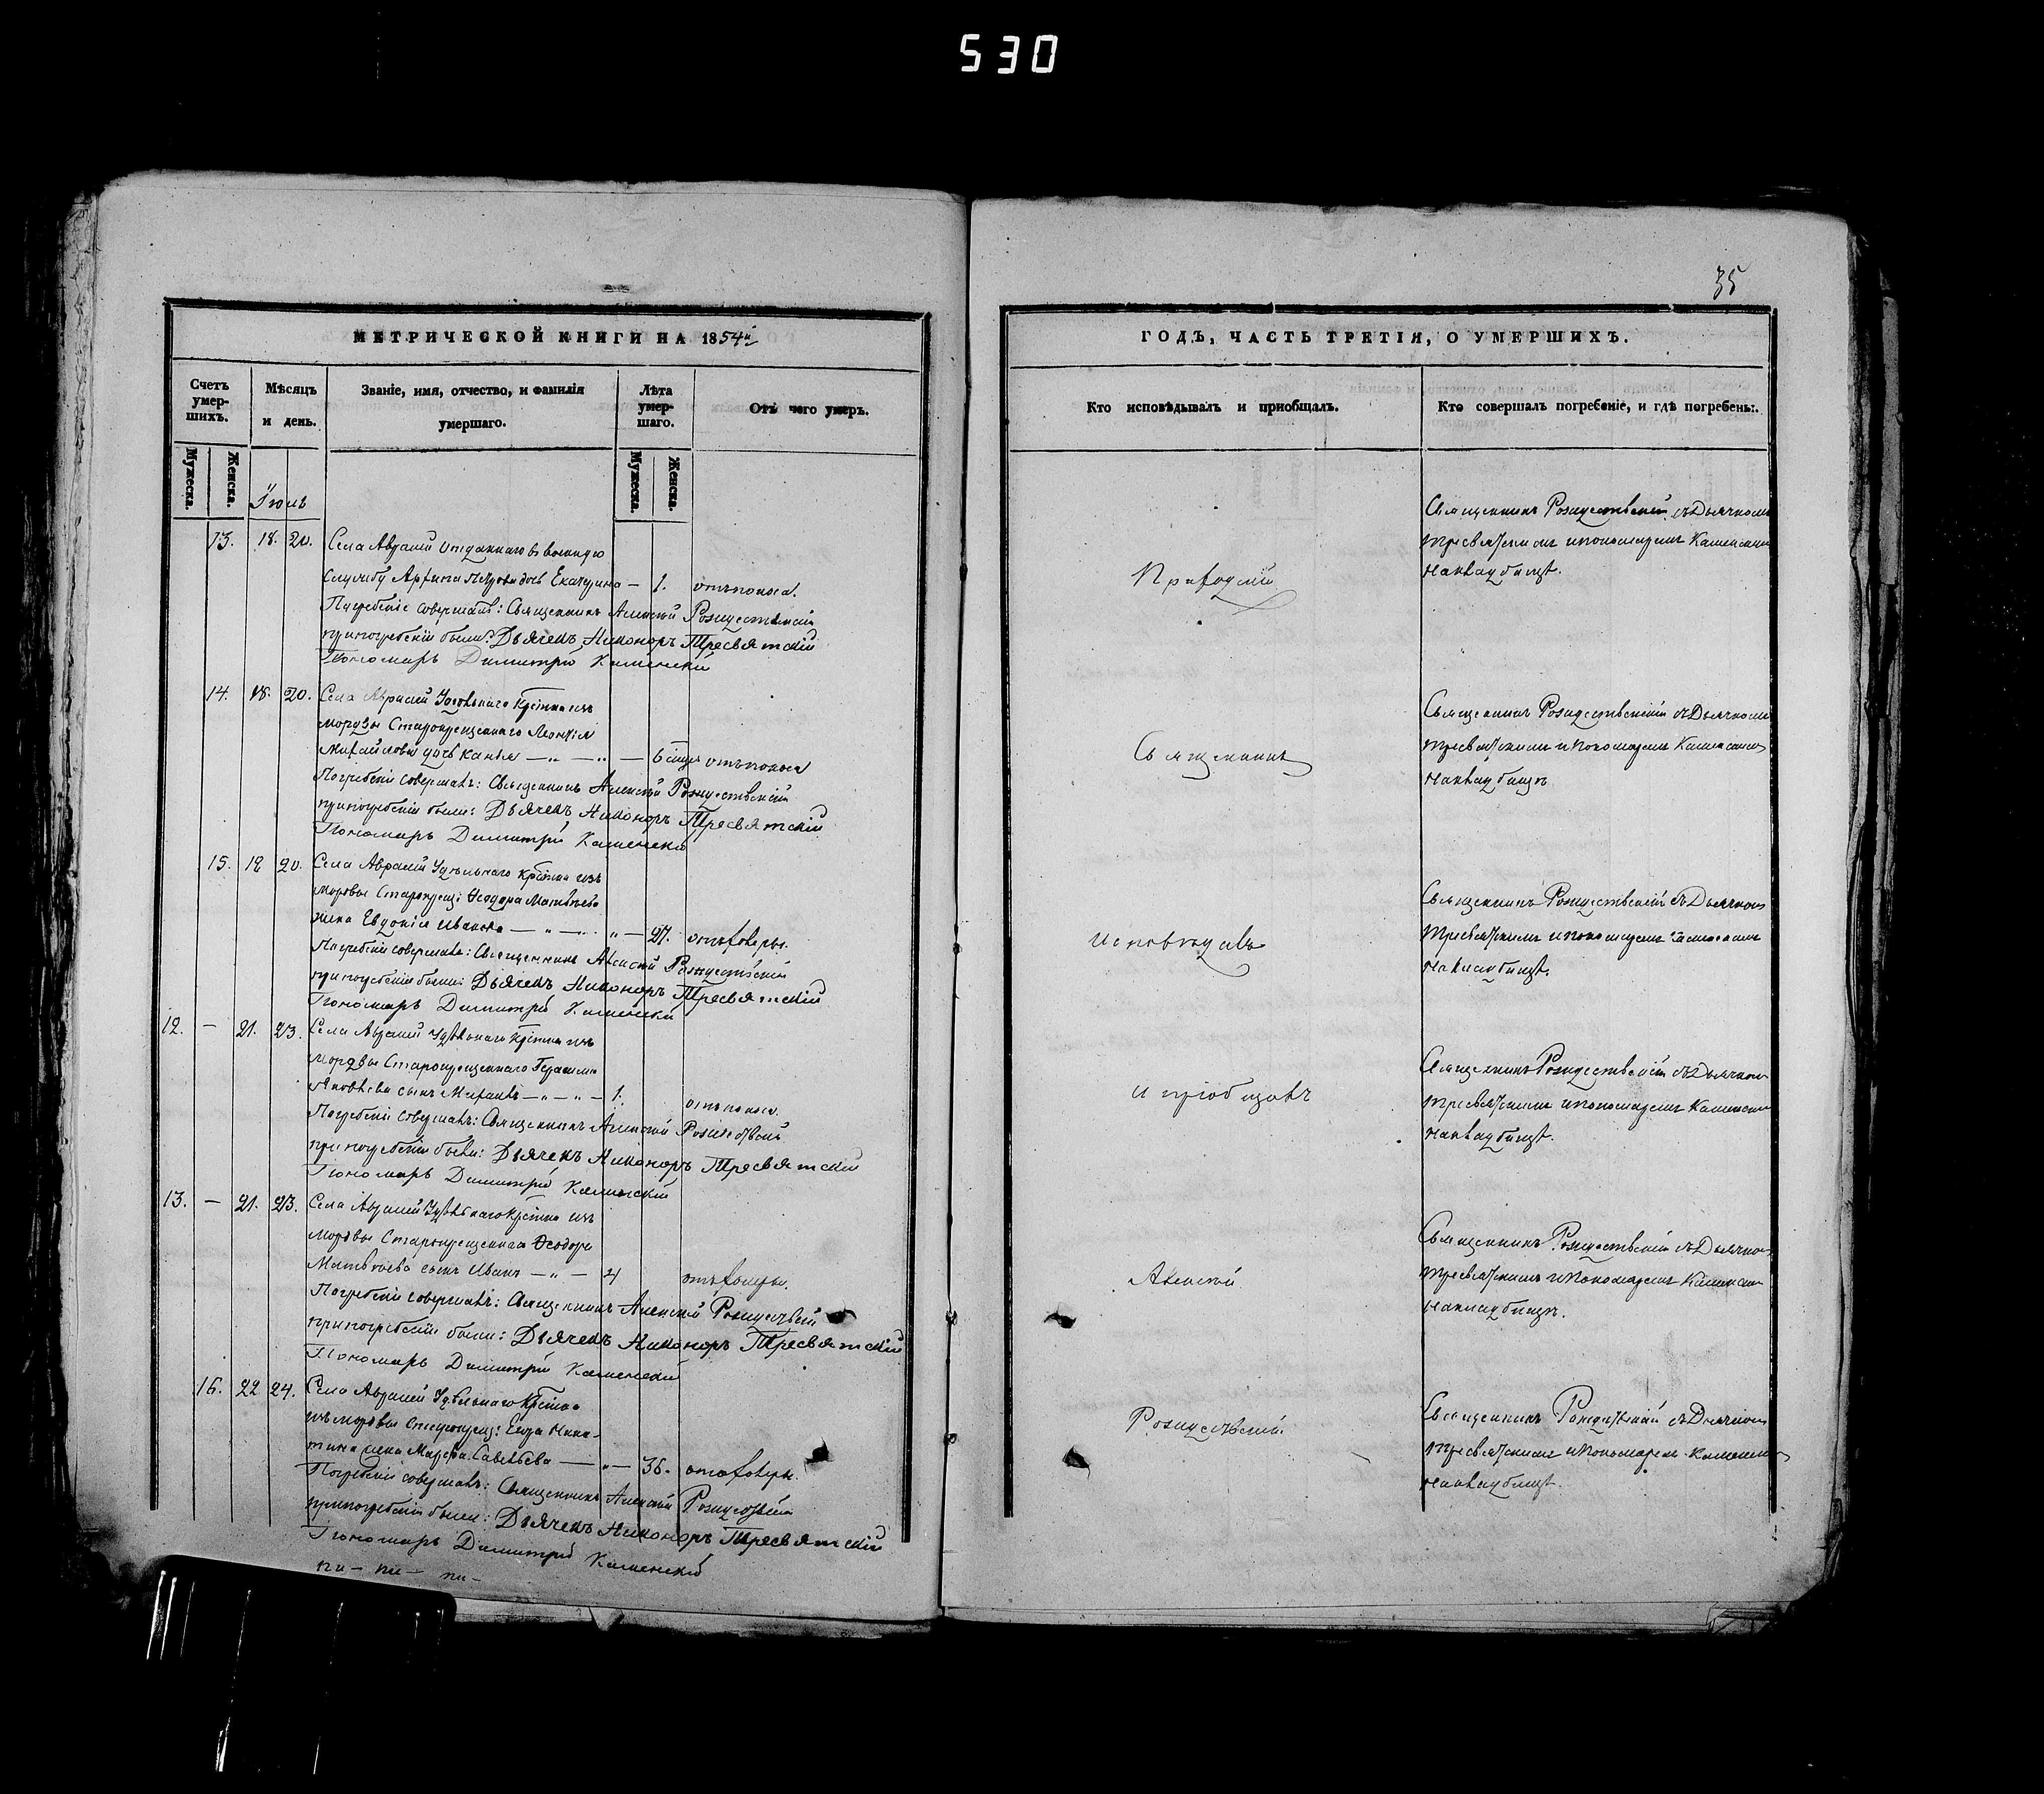 530
35
МЕТРИЧЕСКОЙ КНИГИ НА 1854й
Счетъ умер- шихъ.
Мѣсяцъ и день.
Званіе, имя, отчество, и фамилія умершаго.
Лѣта умер- шаго.
Отъ чего умеръ.
Мужеска. Женска.
Мужеска. Женска.
Іюль
13. 18. 20. Села Авралей отданнаго въ военную
службу Архипа Петрова дочь Екатерина — 1. отъ поноса.
Погребеніе совершалъ: Священникъ Алексій Рождественскій
при погребеніи были: Дьячекъ Никоноръ Тресвятскій
Пономарь Димитрій Каменскій
14. 18. 20. Села Авралей Удѣльнаго Крестьянина изъ
мордвы Старокрещеннаго Леонтія
Михайлова дочь — „ — „ — 6 отъ поноса
Погребеніе совершалъ: Священникъ Алексій Рождественскій
при погребеніи были: Дьячекъ Никоноръ Тресвятскій
Пономарь Димитрій Каменскій
15. 18 20. Села Авралей Удѣльнаго Крестьянина изъ
мордвы Старокрещ: Ѳеодора Матвѣева
жена Евдокія Иванова — „ — „ — 27. отъ холеры.
Погребеніе совершалъ: Священникъ Алексій Рождественскій
при погребеніи были: Дьячекъ Никоноръ Тресвятскій
Пономарь Димитрій Каменскій
12. — 21. 23. Села Авралей Удѣльнаго Крестьянина изъ
мордвы Старокрещеннаго Герасима
Яковлева сынъ Михаилъ — „ — „ — 1. отъ поноса.
Погребеніе совершалъ: Священникъ Алексій Рождественскій
при погребеніи были: Дьячекъ Никоноръ Тресвятскій
Пономарь Димитрій Каменскій
13. — 21. 23. Села Авралей Удѣльнаго Крестьянина изъ
мордвы Старокрещеннаго Ѳеодора
Матвѣева сынъ Иванъ — „ — 4 отъ холеры.
Погребеніе совершалъ: Священникъ Алексій Рождественскій
при погребеніи были: Дьячекъ Никоноръ Тресвятскій
Пономарь Димитрій Каменскій
16. 22 24. Села Авралей Удѣльнаго Крестьянина
изъ мордвы Старокрещ: Егора Ники-
тина жена Марфа Савельева — „ — 36. отъ холеры.
Погребеніе совершалъ: Священникъ Алексій Рождественскій
при погребеніи были: Дьячекъ Никоноръ Тресвятскій
Пономарь Димитрій Каменскій
ГОДЪ, ЧАСТЬ ТРЕТІЯ, О УМЕРШИХЪ.
Кто исповѣдывалъ и пріобщалъ.
Кто совершалъ погребеніе, и гдѣ погребены.
Приходскій
Священникъ
Исповѣдалъ
и пріобщалъ
Алексій
Рождественскій
Священникъ Рождественскій съ Дьячкомъ
Тресвятскимъ и пономаремъ Каменскимъ
на кладбищѣ.
Священникъ Рождественскій съ Дьячкомъ
Тресвятскимъ и пономаремъ Каменскимъ
на кладбищѣ
Священникъ Рождественскій съ Дьячкомъ
Тресвятскимъ и пономаремъ Каменскимъ
на кладбищѣ.
Священникъ Рождественскій съ Дьячкомъ
Тресвятскимъ и пономаремъ Каменскимъ
на кладбищѣ.
Священникъ Рождественскій съ Дьячкомъ
Тресвятскимъ и пономаремъ Каменскимъ
на кладбищѣ.
Священникъ Рождественскій съ Дьячкомъ
Тресвятскимъ и пономаремъ Каменскимъ
на кладбищѣ.